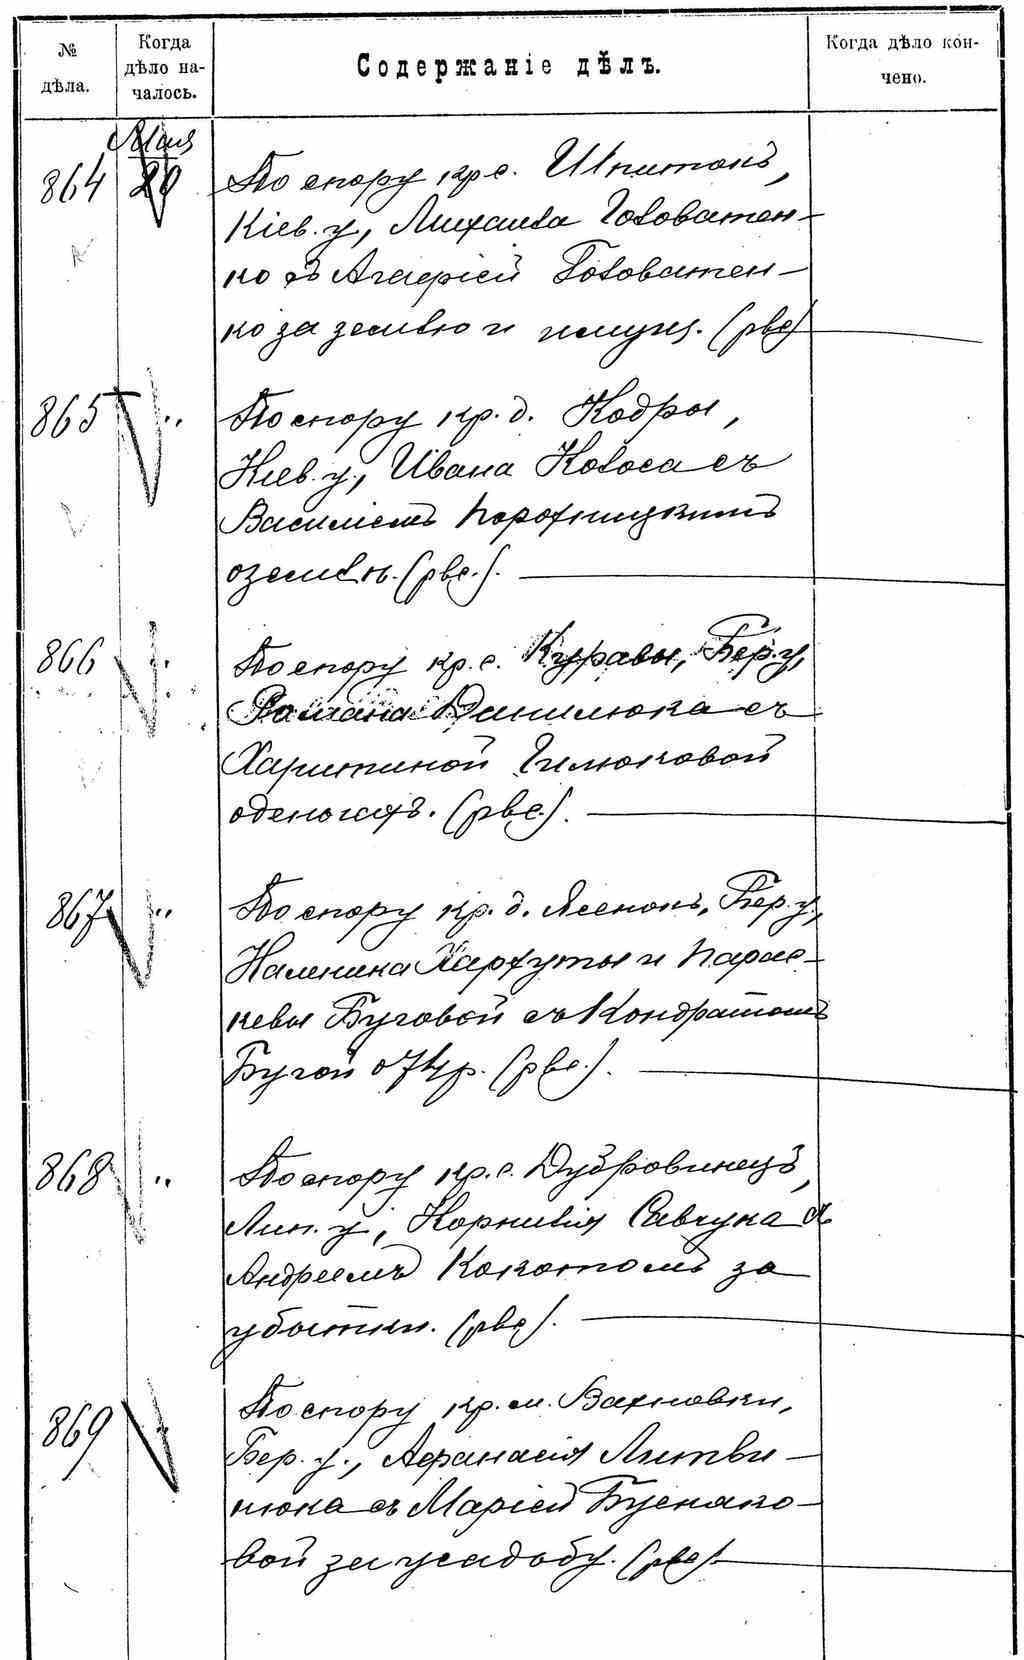 № дѣла.
Когда дѣло началось.
Содержаніе дѣлъ.
Когда дѣло кончено.
Мая
864 20 По спору кр. с. Шпитокъ,
Кіев. у., Михаила Головатен-
ко съ Агафіей Головатен-
ко за землю и имущ. (рвс)
865 " По спору кр. д. Кодры,
Кіев. у., Ивана Колоса съ
Василіемъ Порохницкимъ
о землѣ. (рвс.).
866 " По спору кр. с. Журавы, Бер. у,
Романа Данилюка съ
Харитиной Гилюковой
о деньгахъ. (рвс).
867 " По спору кр. д. Ясенокъ, Бер. у.,
Каленика Хархуты и Парас-
кевы Буговой съ Кондратомъ
Бугой о 74 р. (рвс.).
868 " По спору кр. с. Дубровинецъ,
Лип. у., Корнилія Савчука съ
Андреемъ Кокотомъ за
убытки. (рвс).
869 " По спору кр. м. Вахновки,
Бер. у., Афанасія Литви-
нюка съ Маріей Бусняко-
вой за усадьбу. (рвс).